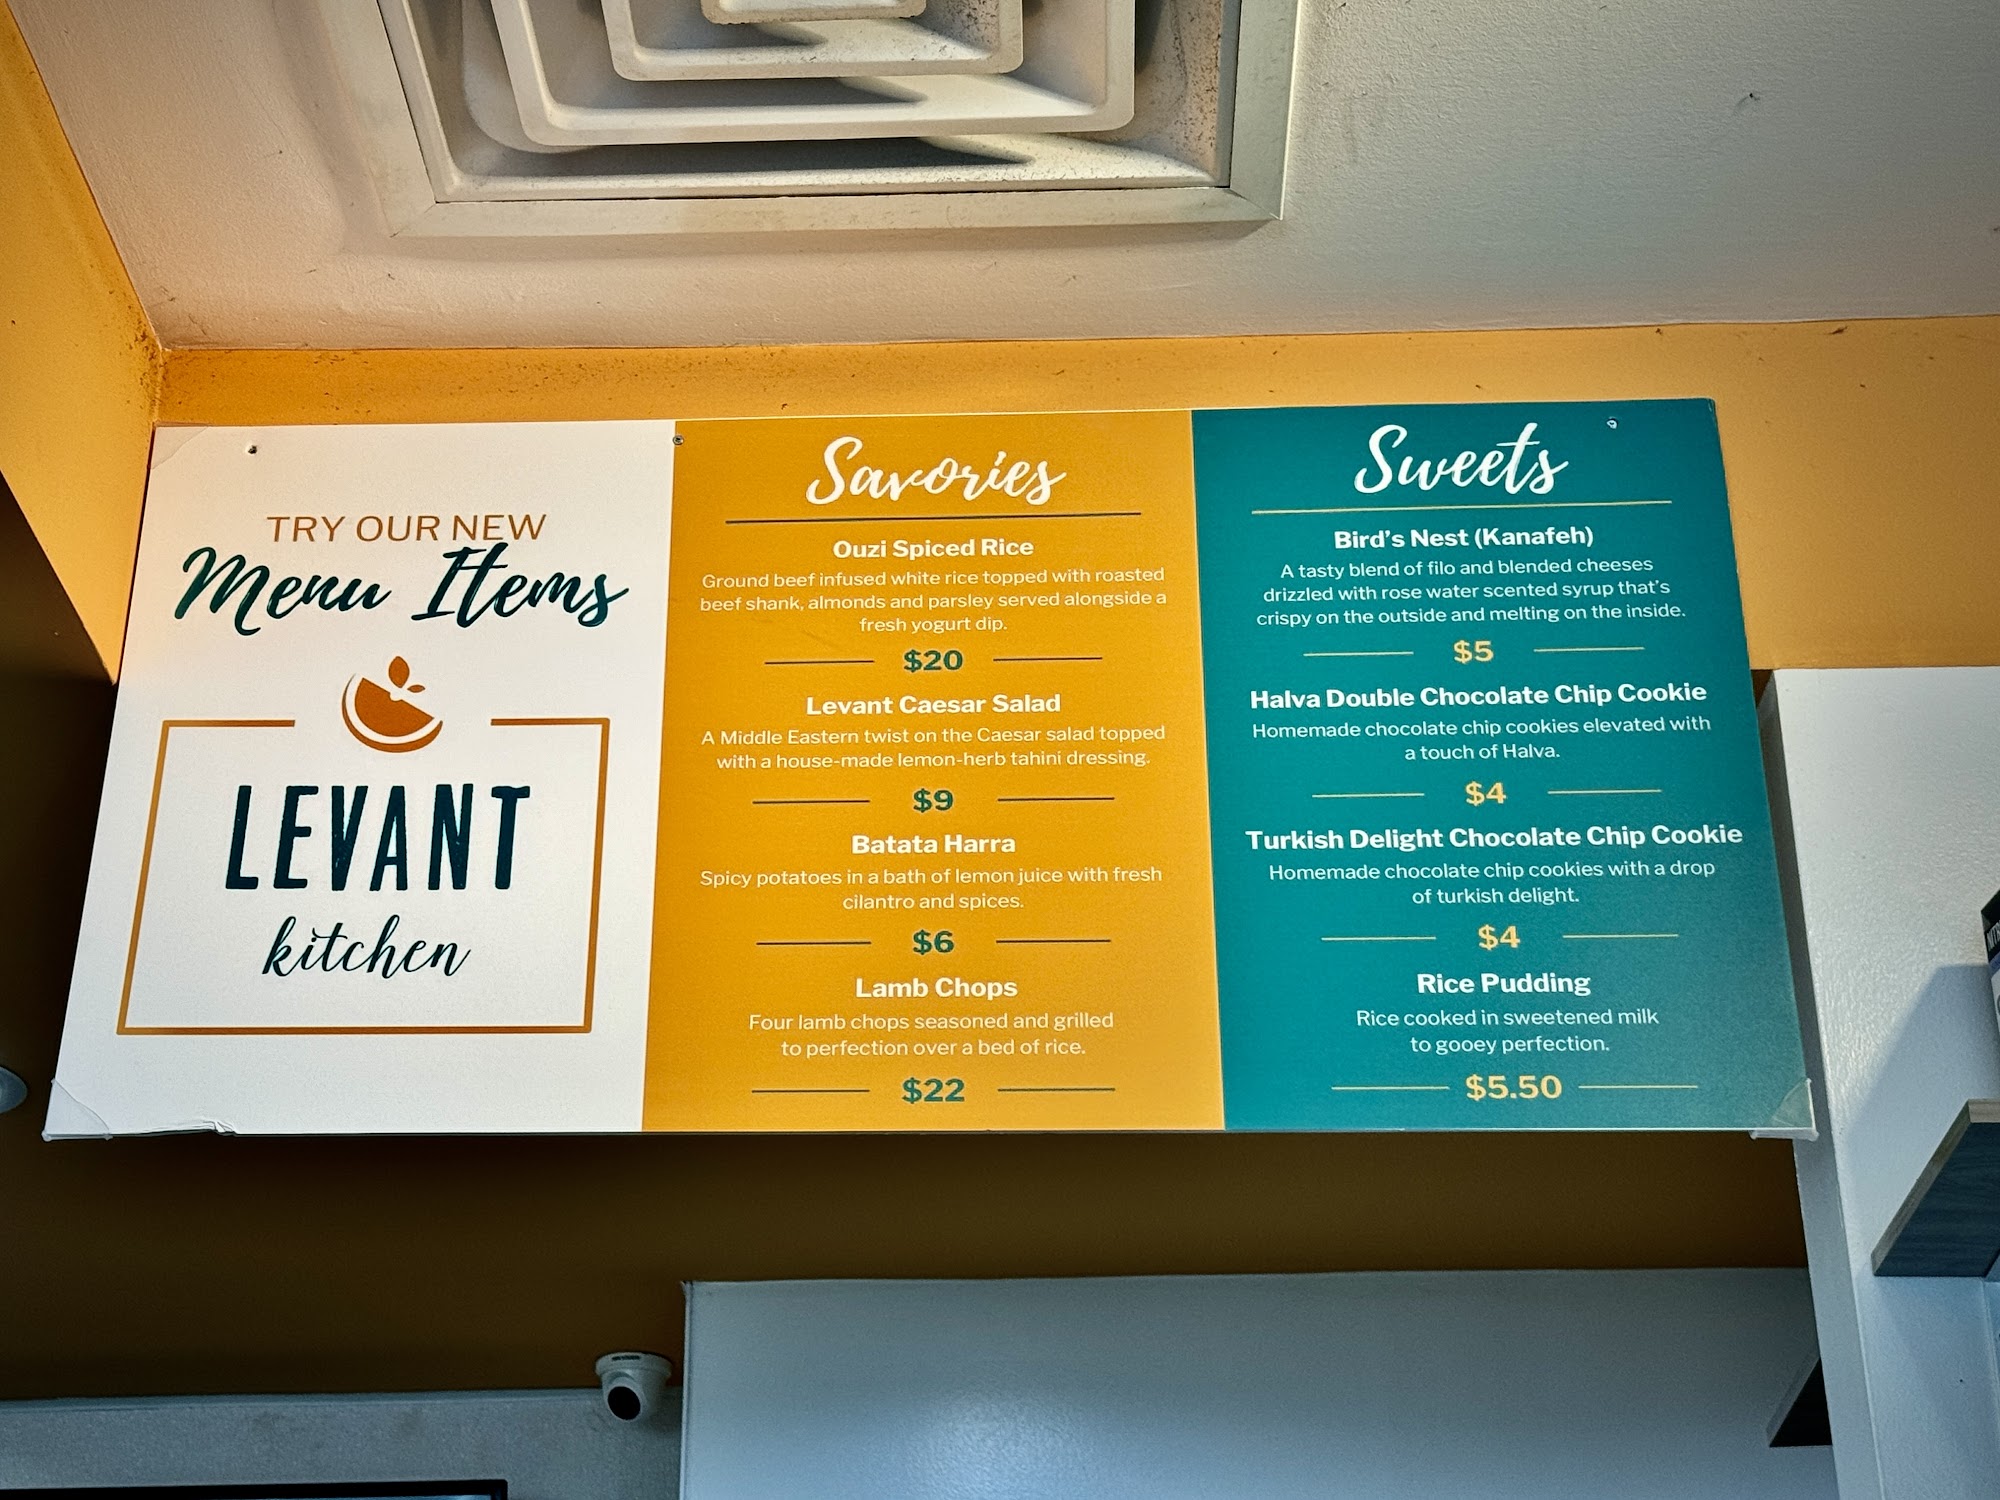 TRY OUR NEW
Menu Items
LEVANT
kitchen
Savories
Ouzi Spiced Rice
Ground beef infused white rice topped with roasted
beef shank, almonds and parsley served alongside a
fresh yogurt dip.
$20
Levant Caesar Salad
A Middle Eastern twist on the Caesar salad topped
with a house-made lemon-herb tahini dressing.
$9
Batata Harra
Spicy potatoes in a bath of lemon juice with fresh
cilantro and spices.
$6
Lamb Chops
Four lamb chops seasoned and grilled
to perfection over a bed of rice.
$22
Sweets
Bird's Nest (Kanafeh)
A tasty blend of filo and blended cheeses
drizzled with rose water scented syrup that's
crispy on the outside and melting on the inside.
$5
Halva Double Chocolate Chip Cookie
Homemade chocolate chip cookies elevated with
a touch of Halva.
$4
Turkish Delight Chocolate Chip Cookie
Homemade chocolate chip cookies with a drop
of turkish delight.
$4
Rice Pudding
Rice cooked in sweetened milk
to gooey perfection.
$5.50